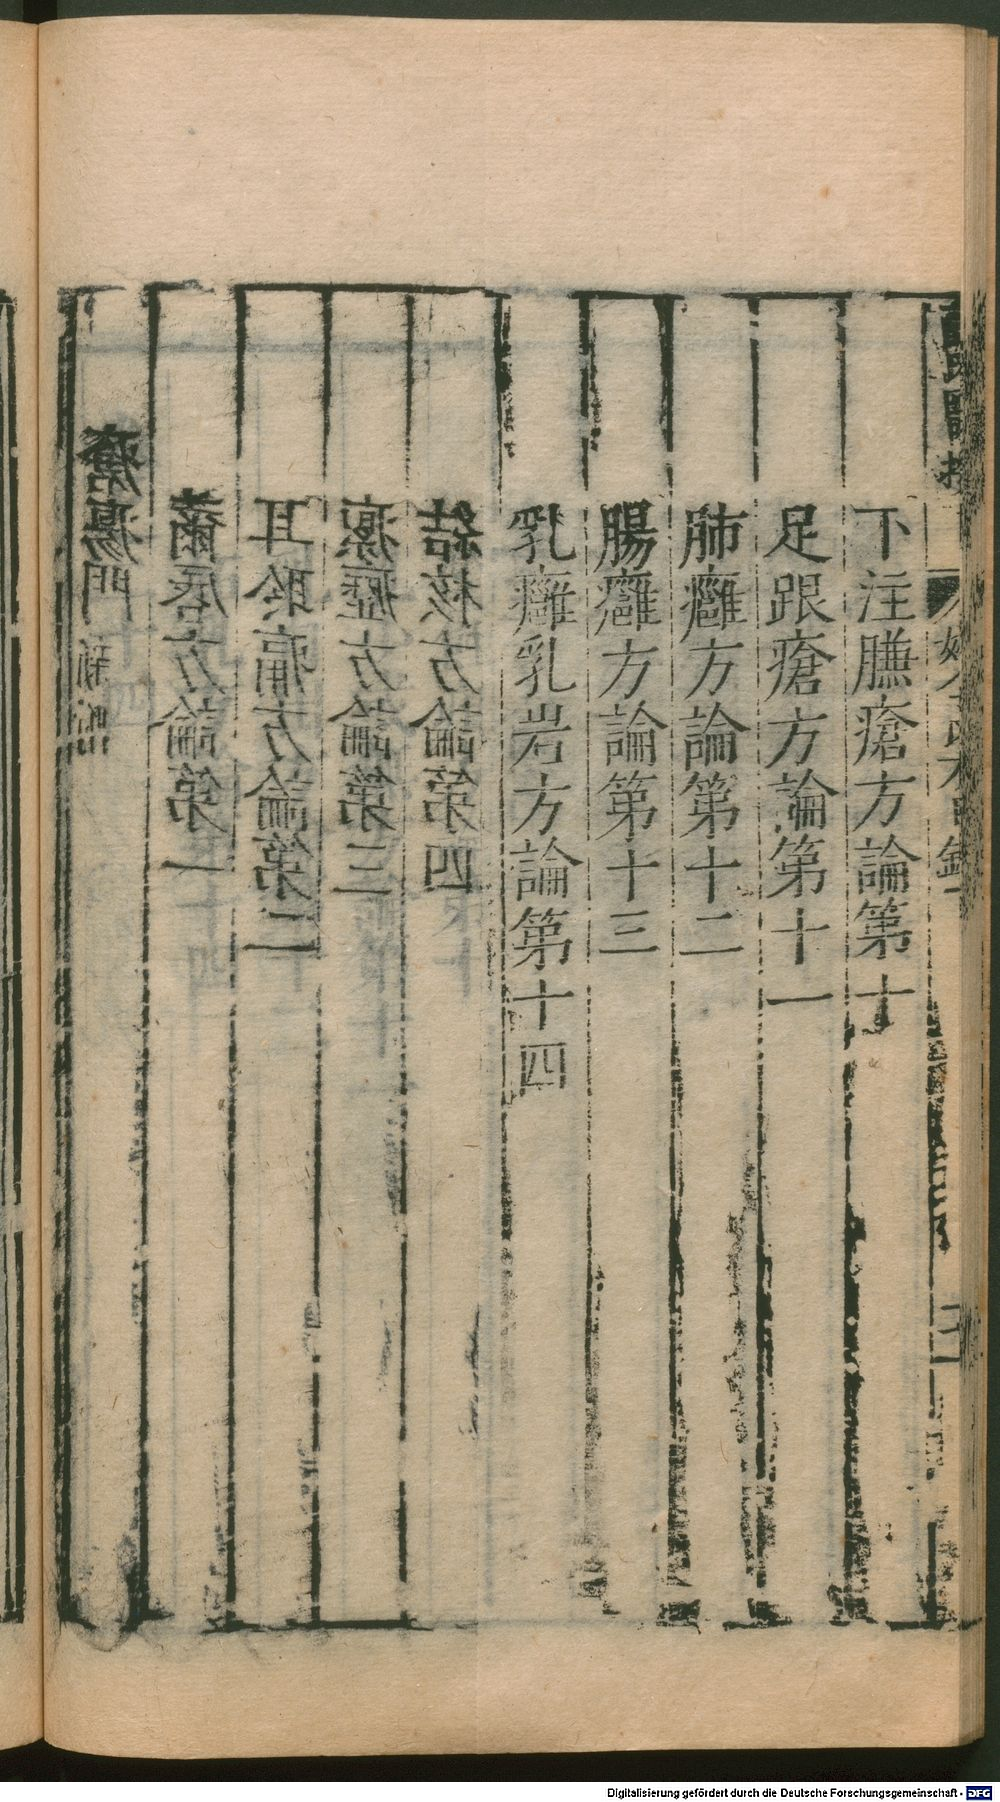 氏醫按
下注臁瘡方論第十
足跟瘡方論第十一
肺癰方論第十二
腸癰方論第十三
乳癰乳岩方論第十四
結核方論第四
瘰癧方論第三
耳痛方論第二
繭唇方論第一
瘡瘍門
Digitalisierung gefördert durch die Deutsche Forschungsgemeinschaft - DFG